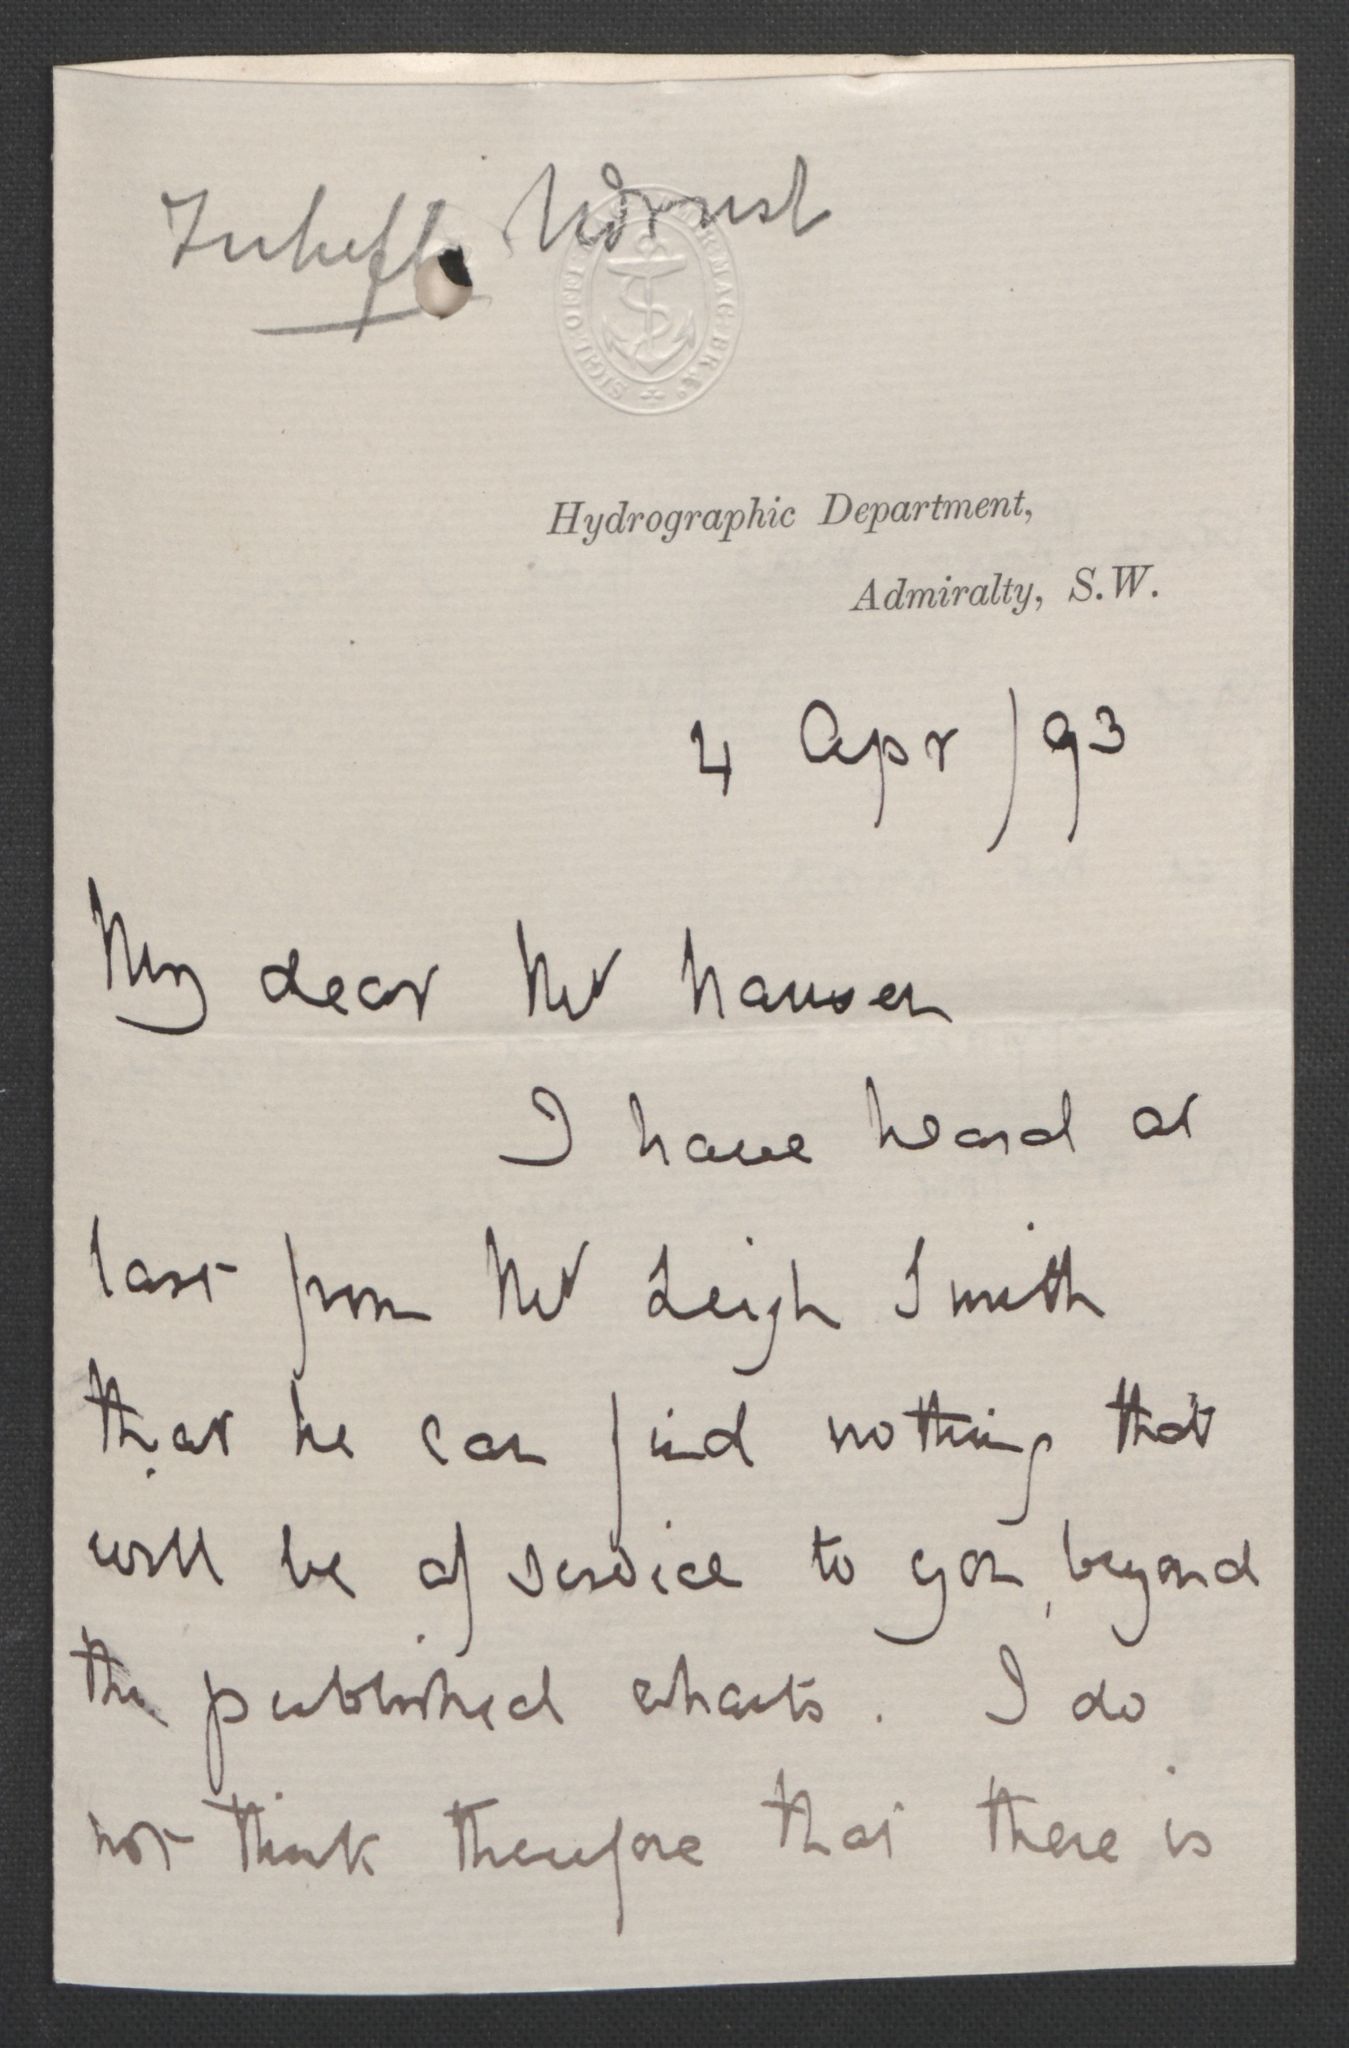 Hydrographic Department,
Admiralty, S.W.
4 Apr / 93
My dear Mr Nansen
I have heard at
last from Mr Leigh Smith
that he can find nothing that
will be of service to you, beyond
the published charts. I do
not think therefore that there is